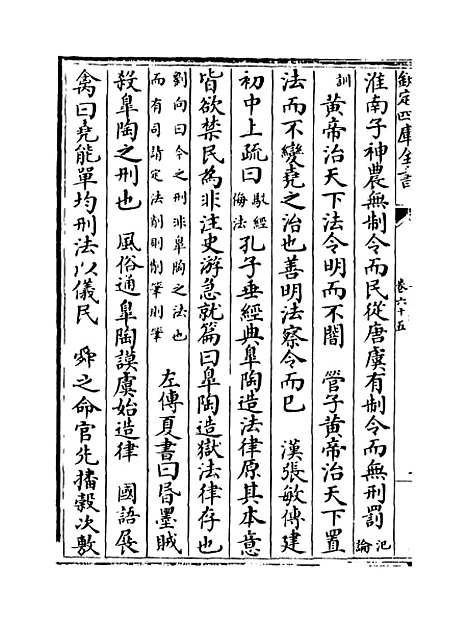 欽定四庫全書
卷六十五
淮南子神農無制令而民從唐虞有制令而無刑罰氾論
訓　黃帝治天下法令明而不闇　管子黃帝治天下置
法而不變堯之治也善明法察令而已　漢張敏傳建
初中上疏曰駁輕侮法孔子垂經典皐陶造法律原其本意
皆欲禁民為非注史游急就篇曰皐陶造獄法律存也
劉向曰今之刑非皐陶之法也而有司請定法削則削筆則筆　左傳夏書曰昬墨賊
殺皐陶之刑也　風俗通皐陶謨虞始造律　國語展
禽曰堯能單均刑法以儀民　舜之命官先播穀次敷